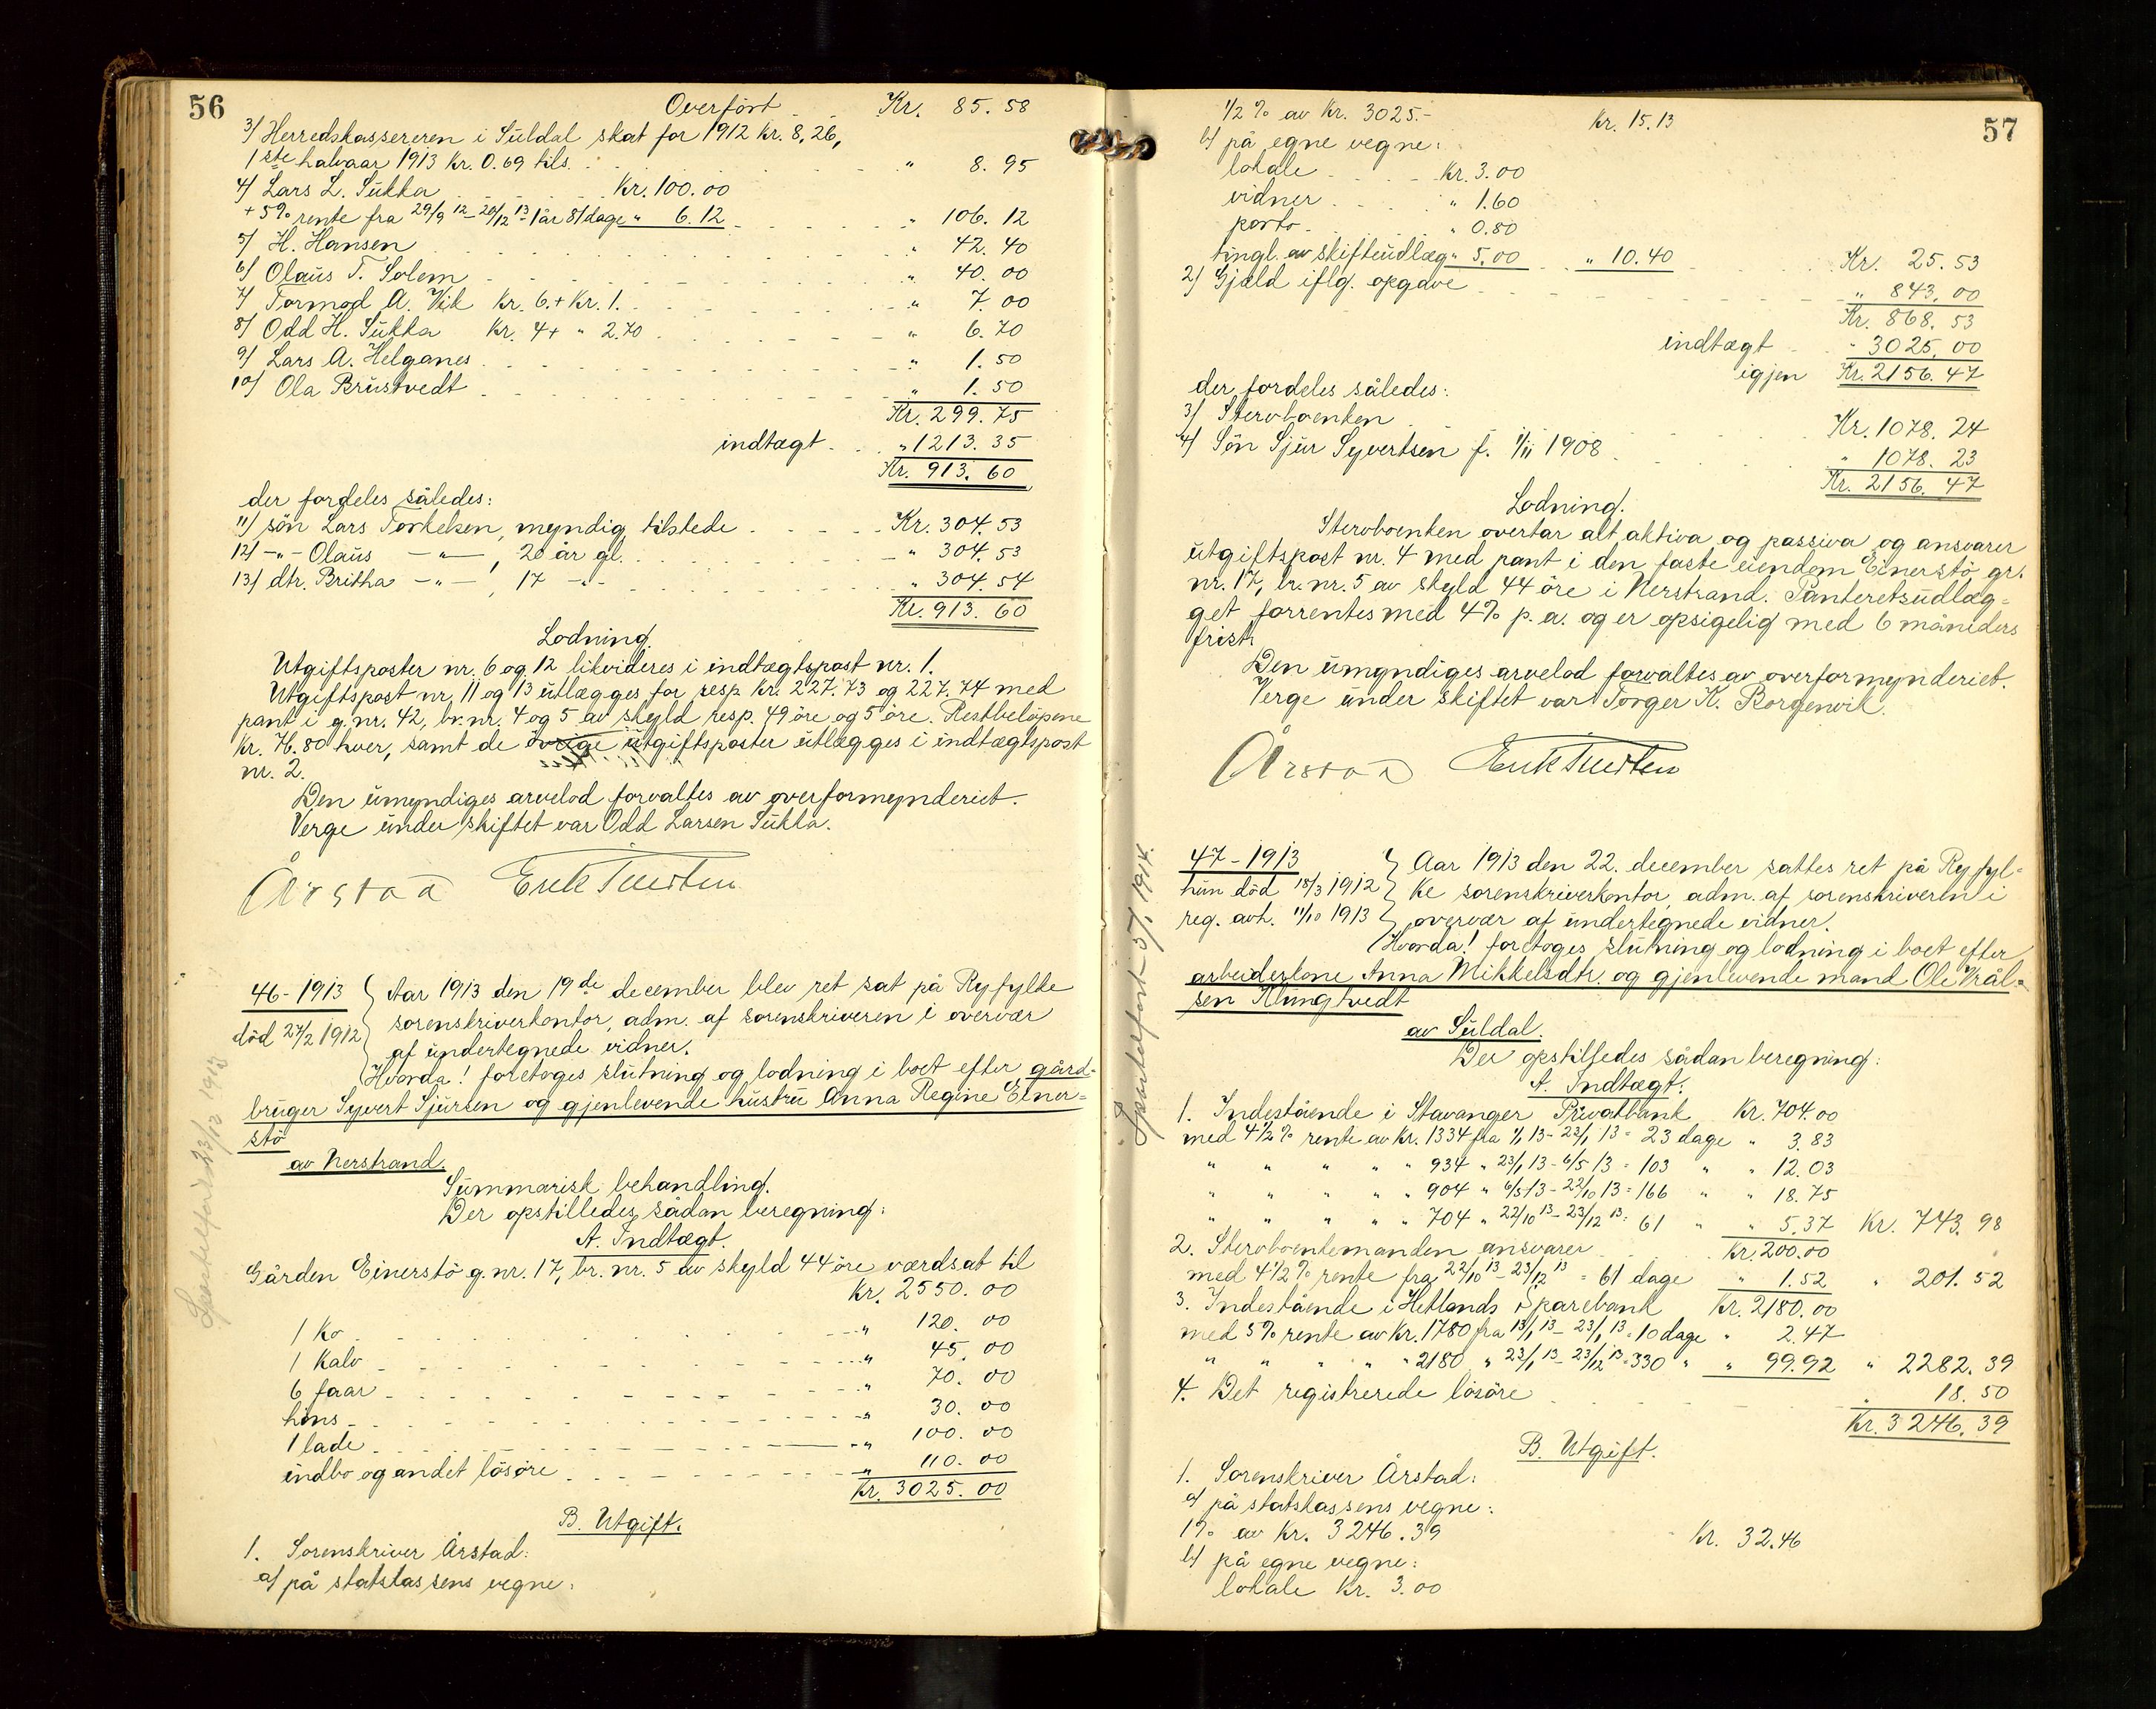 56
Overført Kr. 85.58
3/ Herredskassereren i Suldal skat for 1912 kr. 8,26,
1ste halvaar 1913 kr. 0.69 tils. " 8.95
4/ Lars L. Sukka Kr. 100.00
+ 5% rente fra 29/9 12 - 20/12 13 - 1 år 81 dage " 6.12 " 106.12
5/ H. Hansen " 42.40
6/ Olaus T. Solem " 40.00
7/ Tormod A. Vik Kr. 6. + Kr. 1. " 7.00
8/ Odd H. Sukka Kr. 4 + " 2.70 " 6.70
9/ Lars A. Helganes " 1.50
10/ Ola Brustvedt " 1.50
Kr. 299.75
indtægt " 1213.35
Kr. 913.60
der fordeles således:
11/ søn Lars Torkelsen, myndig, tilstede Kr. 304.53
12/ -"- Olaus -"-, 20 år gl. " 304.53
13/ dtr. Britha -"-, 17 -"- " 304.54
Kr. 913.60
Lodning.
Utgiftsposter nr. 6 og 12 likvideres i indtægtspost nr. 1.
Utgiftspost nr. 11 og 13 utlægges for resp. Kr. 227.73 og 227.74 med
pant i g.nr. 42, br.nr. 4 og 5 av skyld resp. 49 øre og 5 øre. Restbeløpene
Kr. 76.80 hver, samt de øvrige utgiftsposter utlægges i indtægtspost
nr. 2.
Den umyndiges arvelod forvaltes av overformynderiet.
Verge under skiftet var Odd Larsen Sukka.
Årstad
46-1913
død 27/2 1912
Aar 1913 den 19de december blev ret sat på Ryfylke
sorenskriverkontor, adm. af sorenskriveren i overvær
af undertegnede vidner.
Hvorda! foretoges slutning og lodning i boet efter gård-
bruger Syvert Sjursen og gjenlevende hustru Anna Regine Einer-
stø
av Nerstrand.
Summarisk behandling.
Der opstilledes sådan beregning:
A. Indtægt.
Gården Einerstø g.nr. 17, br. nr. 5 av skyld 44 øre værdsat til
Kr. 2550.00
1 ko " 120.00
1 kalv " 45.00
6 faar " 70.00
høns " 30.00
1 lade " 100.00
indbo og andet løsøre " 110.00
Kr. 3025.00
B. Utgift.
1. Sorenskriver Årstad:
a/ på statskassens vegne:
57
1/2 % av Kr. 3025.- Kr. 15.13
b/ på egne vegne:
lokale Kr. 3.00
vidner " 1.60
porto " 0.80
tingl. av skifteudlæg " 5.00 " 10.40 Kr. 25.53
2/ Gjæld iflg. opgave " 843.00
Kr. 868.53
indtægt " 3025.00
igjen Kr. 2156.47
der fordeles således:
3/ Stervboenken Kr. 1078.24
4/ Søn Sjur Syvertsen f. 1/11 1908 " 1078.23
Kr. 2156.47
Lodning.
Stervboenken overtar alt aktiva og passiva og ansvarer
utgiftspost nr. 4 med pant i den faste eiendom Einerstø gr.
nr. 17, br. nr. 5 av skyld 44 øre i Nerstrand. Panteretsudlæg-
get forrentes med 4% p.a. og er opsigelig med 6 måneders
frist.
Den umyndiges arvelod forvaltes av overformynderiet.
Verge under skiftet var Torger K. Borgenvik.
Årstad
47-1913
hun død 18/3 1912
reg. avh. 11/10 1913
Aar 1913 den 22. december sattes ret på Ryfyl-
ke sorenskriverkontor, adm. af sorenskriveren i
overvær af undertegnede vidner.
Hvorda! foretoges slutning og lodning i boet efter
arbeiderkone Anna Mikkelsdtr. og gjenlevende mand Ole Vrål-
sen Klungtvedt
av Suldal.
Der opstilledes sådan beregning:
A. Indtægt:
1. Indestående i Stavanger Privatbank Kr. 704.00
med 4 1/2 % rente av Kr. 1334 fra 1/1 13 - 23/1 13 = 23 dage " 3.83
" " " " " 934 " 23/1 13 - 6/5 13 = 103 " " 12.03
" " " " " 904 " 6/5 13 - 22/10 13 = 166 " " 18.75
" " " " " 704 " 22/10 13 - 23/12 13 = 61 " " 5.37 Kr. 743.98
2. Stervboentemanden ansvarer Kr. 200.00
med 4 1/2 % rente fra 22/10 13 - 23/12 13 = 61 dage " 1.52 " 201.52
3. Indestående i Hetlands Sparebank Kr. 2180.00
med 5% rente av Kr. 1780 fra 13/1 13 - 23/1 13 = 10 dage " 2.47
" " " " " 2180 " 23/1 13 - 23/12 13 = 330 " " 99.92 " 2282.39
4. Det registrerede løsøre " 18.50
Kr. 3246.39
B. Utgift.
1. Sorenskriver Årstad:
a/ på statskassens vegne:
1% av Kr. 3246.39 Kr. 32.46
b/ på egne vegne:
lokale Kr. 3.00